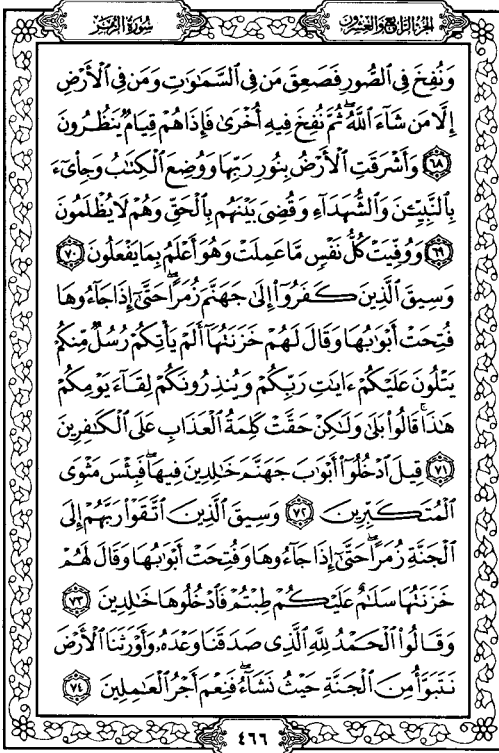 الجزء الرابع والعشرون سورة الزمر
وَنُفِخَ فِي ٱلصُّورِ فَصَعِقَ مَن فِي ٱلسَّمَٰوَٰتِ وَمَن فِي ٱلْأَرْضِ
إِلَّا مَن شَآءَ ٱللَّهُ ۖ ثُمَّ نُفِخَ فِيهِ أُخْرَىٰ فَإِذَا هُمْ قِيَامٌ يَنظُرُونَ
٦٨ وَأَشْرَقَتِ ٱلْأَرْضُ بِنُورِ رَبِّهَا وَوُضِعَ ٱلْكِتَٰبُ وَجِا۟ىٓءَ
بِٱلنَّبِيِّۦنَ وَٱلشُّهَدَآءِ وَقُضِيَ بَيْنَهُم بِٱلْحَقِّ وَهُمْ لَا يُظْلَمُونَ
٦٩ وَوُفِّيَتْ كُلُّ نَفْسٍ مَّا عَمِلَتْ وَهُوَ أَعْلَمُ بِمَا يَفْعَلُونَ ٧٠
وَسِيقَ ٱلَّذِينَ كَفَرُوٓا۟ إِلَىٰ جَهَنَّمَ زُمَرًا ۖ حَتَّىٰٓ إِذَا جَآءُوهَا
فُتِحَتْ أَبْوَٰبُهَا وَقَالَ لَهُمْ خَزَنَتُهَآ أَلَمْ يَأْتِكُمْ رُسُلٌ مِّنكُمْ
يَتْلُونَ عَلَيْكُمْ ءَايَٰتِ رَبِّكُمْ وَيُنذِرُونَكُمْ لِقَآءَ يَوْمِكُمْ
هَٰذَا ۚ قَالُوا۟ بَلَىٰ وَلَٰكِنْ حَقَّتْ كَلِمَةُ ٱلْعَذَابِ عَلَى ٱلْكَٰفِرِينَ
٧١ قِيلَ ٱدْخُلُوٓا۟ أَبْوَٰبَ جَهَنَّمَ خَٰلِدِينَ فِيهَا ۖ فَبِئْسَ مَثْوَى
ٱلْمُتَكَبِّرِينَ ٧٢ وَسِيقَ ٱلَّذِينَ ٱتَّقَوْا۟ رَبَّهُمْ إِلَى
ٱلْجَنَّةِ زُمَرًا ۖ حَتَّىٰٓ إِذَا جَآءُوهَا وَفُتِحَتْ أَبْوَٰبُهَا وَقَالَ لَهُمْ
خَزَنَتُهَا سَلَٰمٌ عَلَيْكُمْ طِبْتُمْ فَٱدْخُلُوهَا خَٰلِدِينَ ٧٣
وَقَالُوا۟ ٱلْحَمْدُ لِلَّهِ ٱلَّذِي صَدَقَنَا وَعْدَهُۥ وَأَوْرَثَنَا ٱلْأَرْضَ
نَتَبَوَّأُ مِنَ ٱلْجَنَّةِ حَيْثُ نَشَآءُ ۖ فَنِعْمَ أَجْرُ ٱلْعَٰمِلِينَ ٧٤
٤٦٦